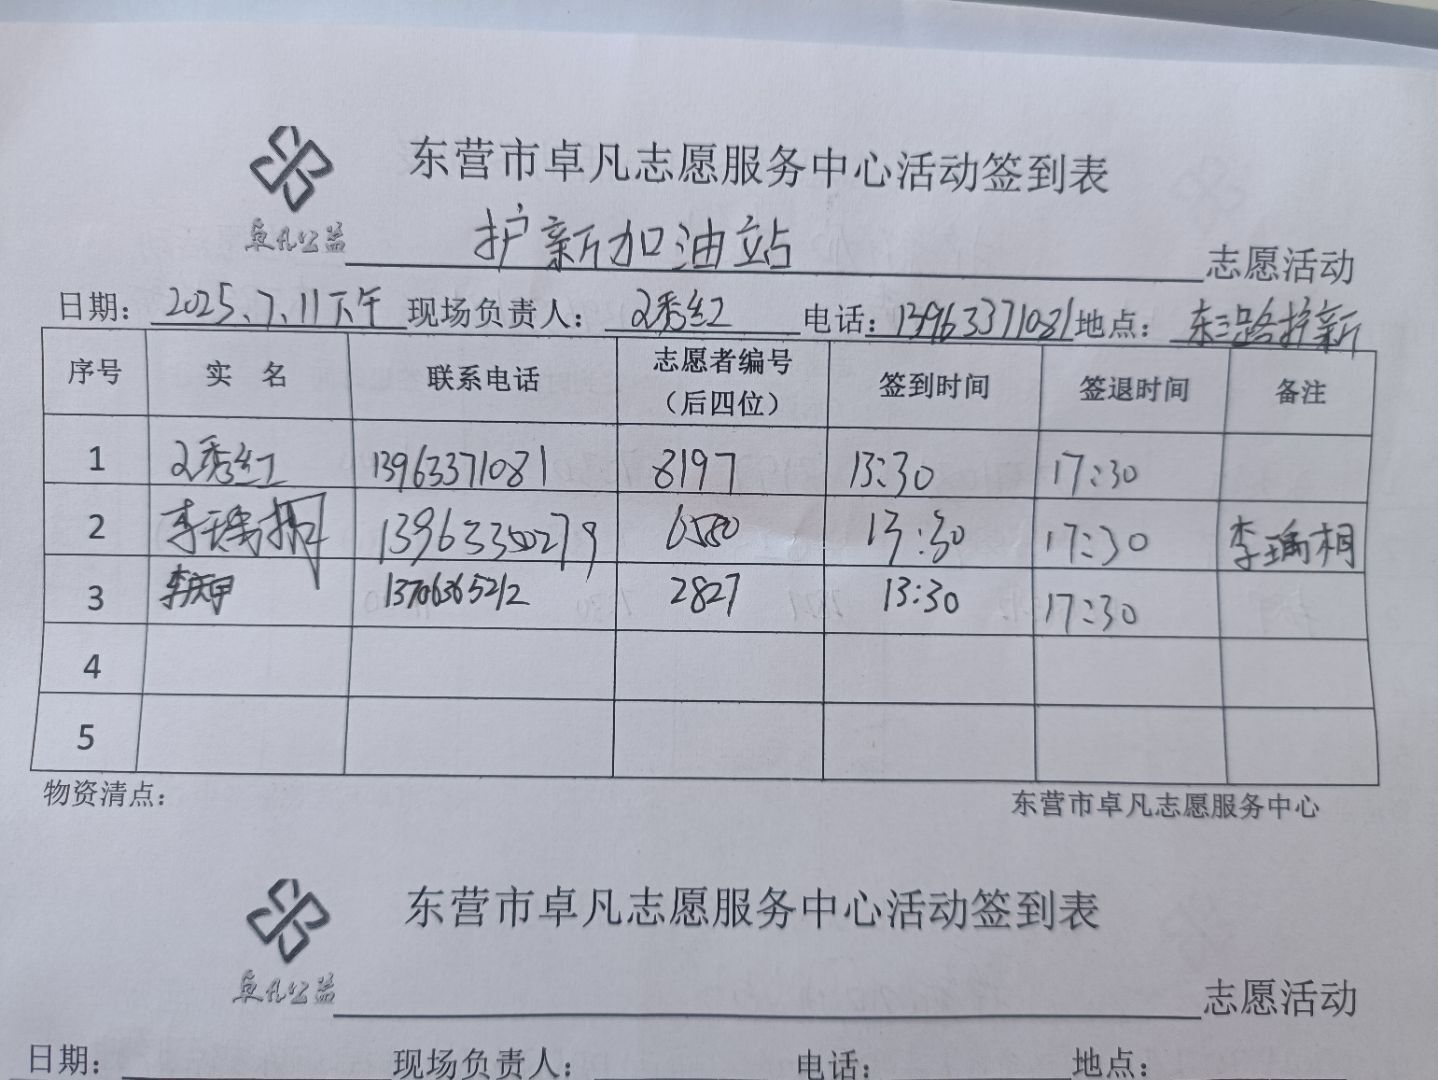 东营市卓凡志愿服务中心活动签到表
卓凡公益 护新加油站 志愿活动
日期: 2025.7.11下午 现场负责人: 秀红 电话: 13963371081 地点: 东三路护新
序号 实 名 联系电话 志愿者编号（后四位） 签到时间 签退时间 备注
1 秀红 13963371081 8197 13:30 17:30
2 李瑀桐 13963350279 6580 13:30 17:30 李瑀桐
3 李庆甲 13706365212 2827 13:30 17:30
4
5
物资清点： 东营市卓凡志愿服务中心
东营市卓凡志愿服务中心活动签到表
卓凡公益 志愿活动
日期: 现场负责人: 电话: 地点: